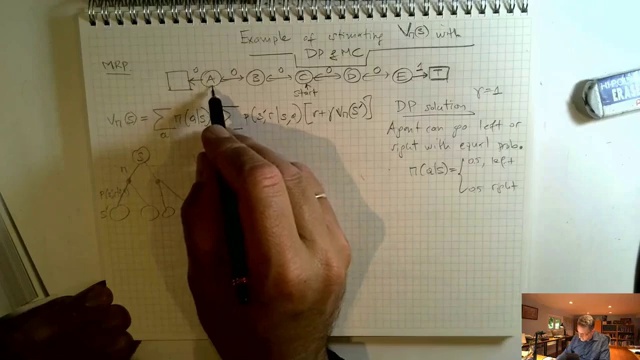 Example of estimating Vπ(s) with
DP & MC
MRP
0 A 0 B 0 C 0 D 0 E 1 T
start
Vπ(s) = Σ π(a|s) Σ p(s' r|s, a) [r + γ Vπ(s')]
a
DP solution γ = 1
Agent can go left or
right with equal prob.
π(a|s) = { 0.5, left
0.5 right
s
π
s'
ERASER